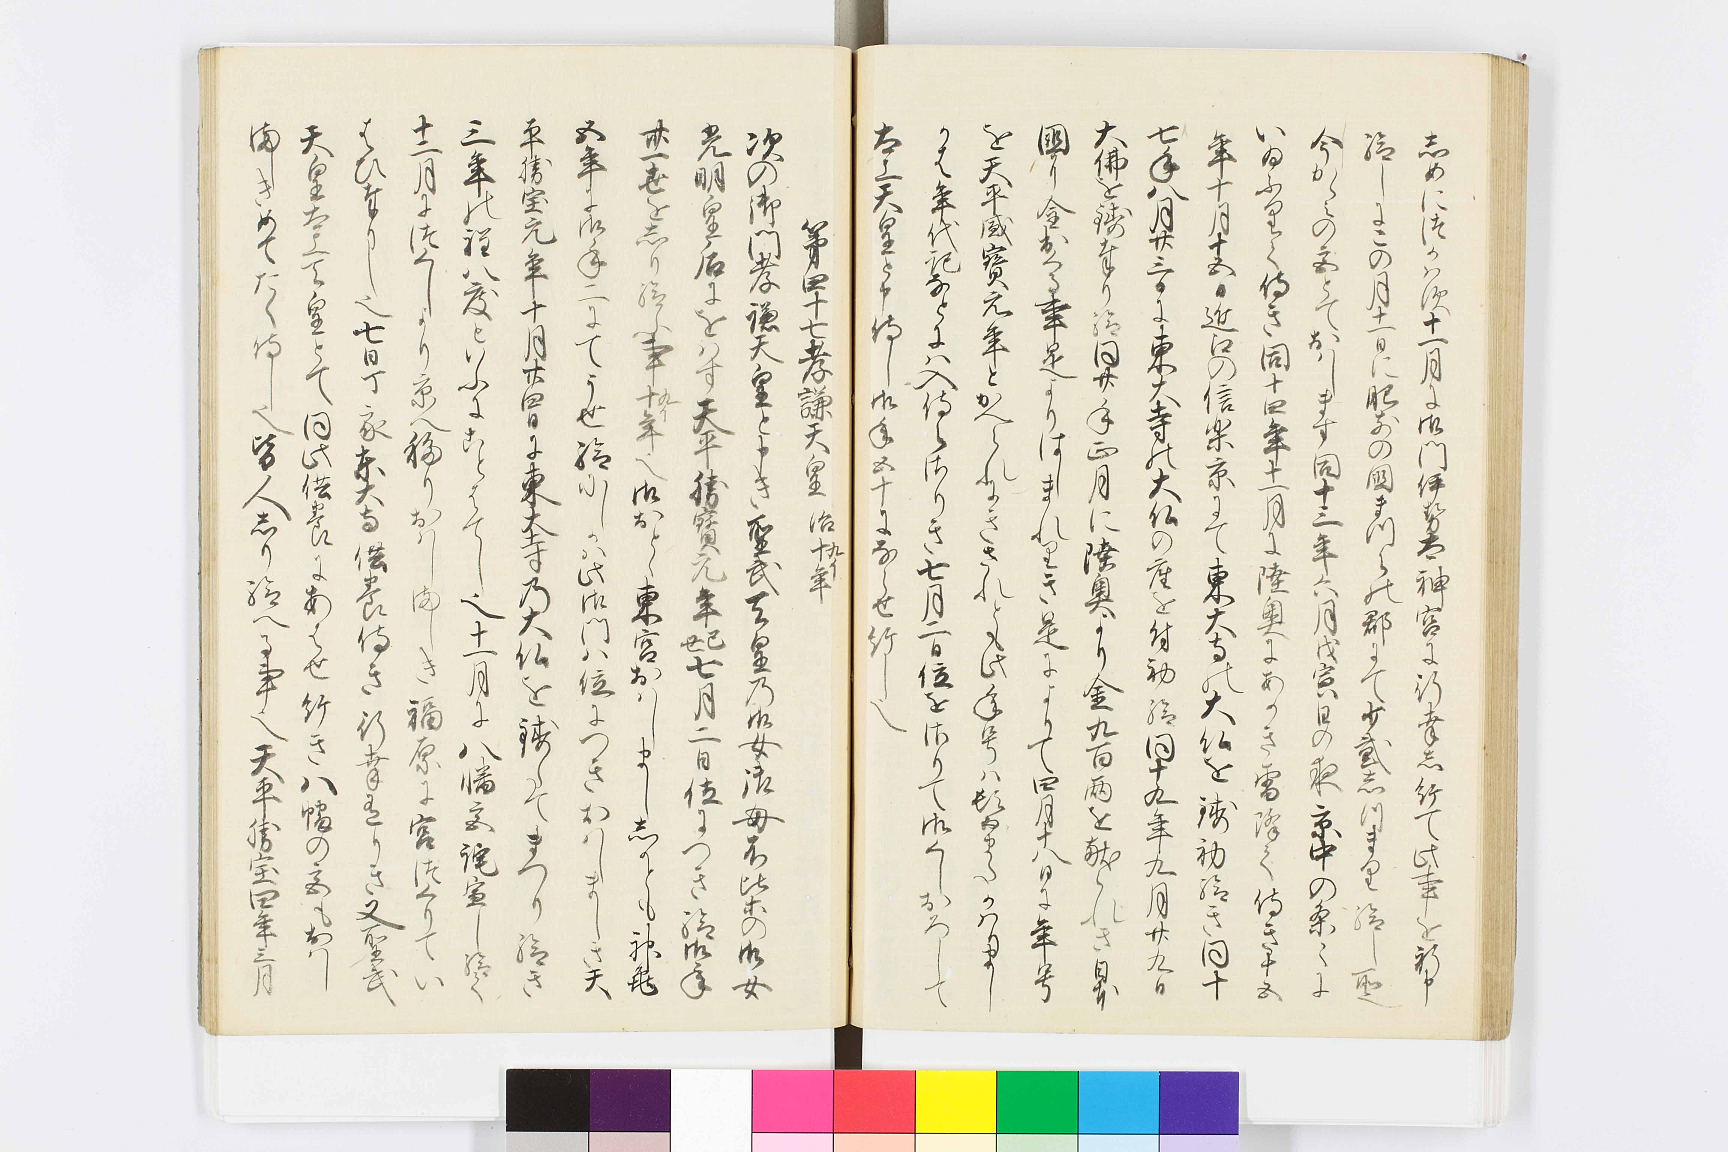 しめにつかはす十一月に御門伊勢太神宮に行幸し給て此事を祈申
給しにこの月十一日に肥前の國まつらの郡にて少貳志つまり給し
今かゝみの宮とておはします同十三年六月戊寅日の夜京中の条々に
いゐふりて侍き同十四年十一月に陸奥にあかき雪降て侍き十五
年十月十五日近江の信楽京にて東大寺の大仏を鋳初給き同十
七年八月廿三日に東大寺の大仏の座を付初給同十九年九月廿九日
大佛を鋳奉り給同廿一年正月に陸奥より金九百両を献られき
國に金出る事是よりはしまれりき是によりて四月十八日に年号
を天平感寶元年とかへられにきされとも此年号は
かは年代記なとには入侍らさりき七月二日位をさりて御くしおろして
太上天皇と申侍し御年五十にならせ給し也
第四十七孝謙天皇 治十年
次の御門孝謙天皇と申き聖武天皇乃御女御母不比等の御女
光明皇后にをはす天平勝寶元年己丑七月二日位につき給御年
卅一世をしり給事十年也御おとゝ東宮おはしましゝかとも神龜
五年に御年二にてうせ給にしかは此御門は位につきおはしましき天
平勝宝元年十月廿四日に東大寺乃大仏を鋳たてまつり給き
三年の程八度といふにことをへてし也十一月に八幡宮託宣し給て
十二月につくしより京へ移りおはしましき福原に宮つくりてい
はひ奉りし也七日丁亥東大寺供養侍き行幸ありき又聖武
天皇太上天皇とて同此供養にあはせ給き八幡の宮もおはし
ましきめてたく侍し也皆人しり給へる事也天平勝宝四年三月